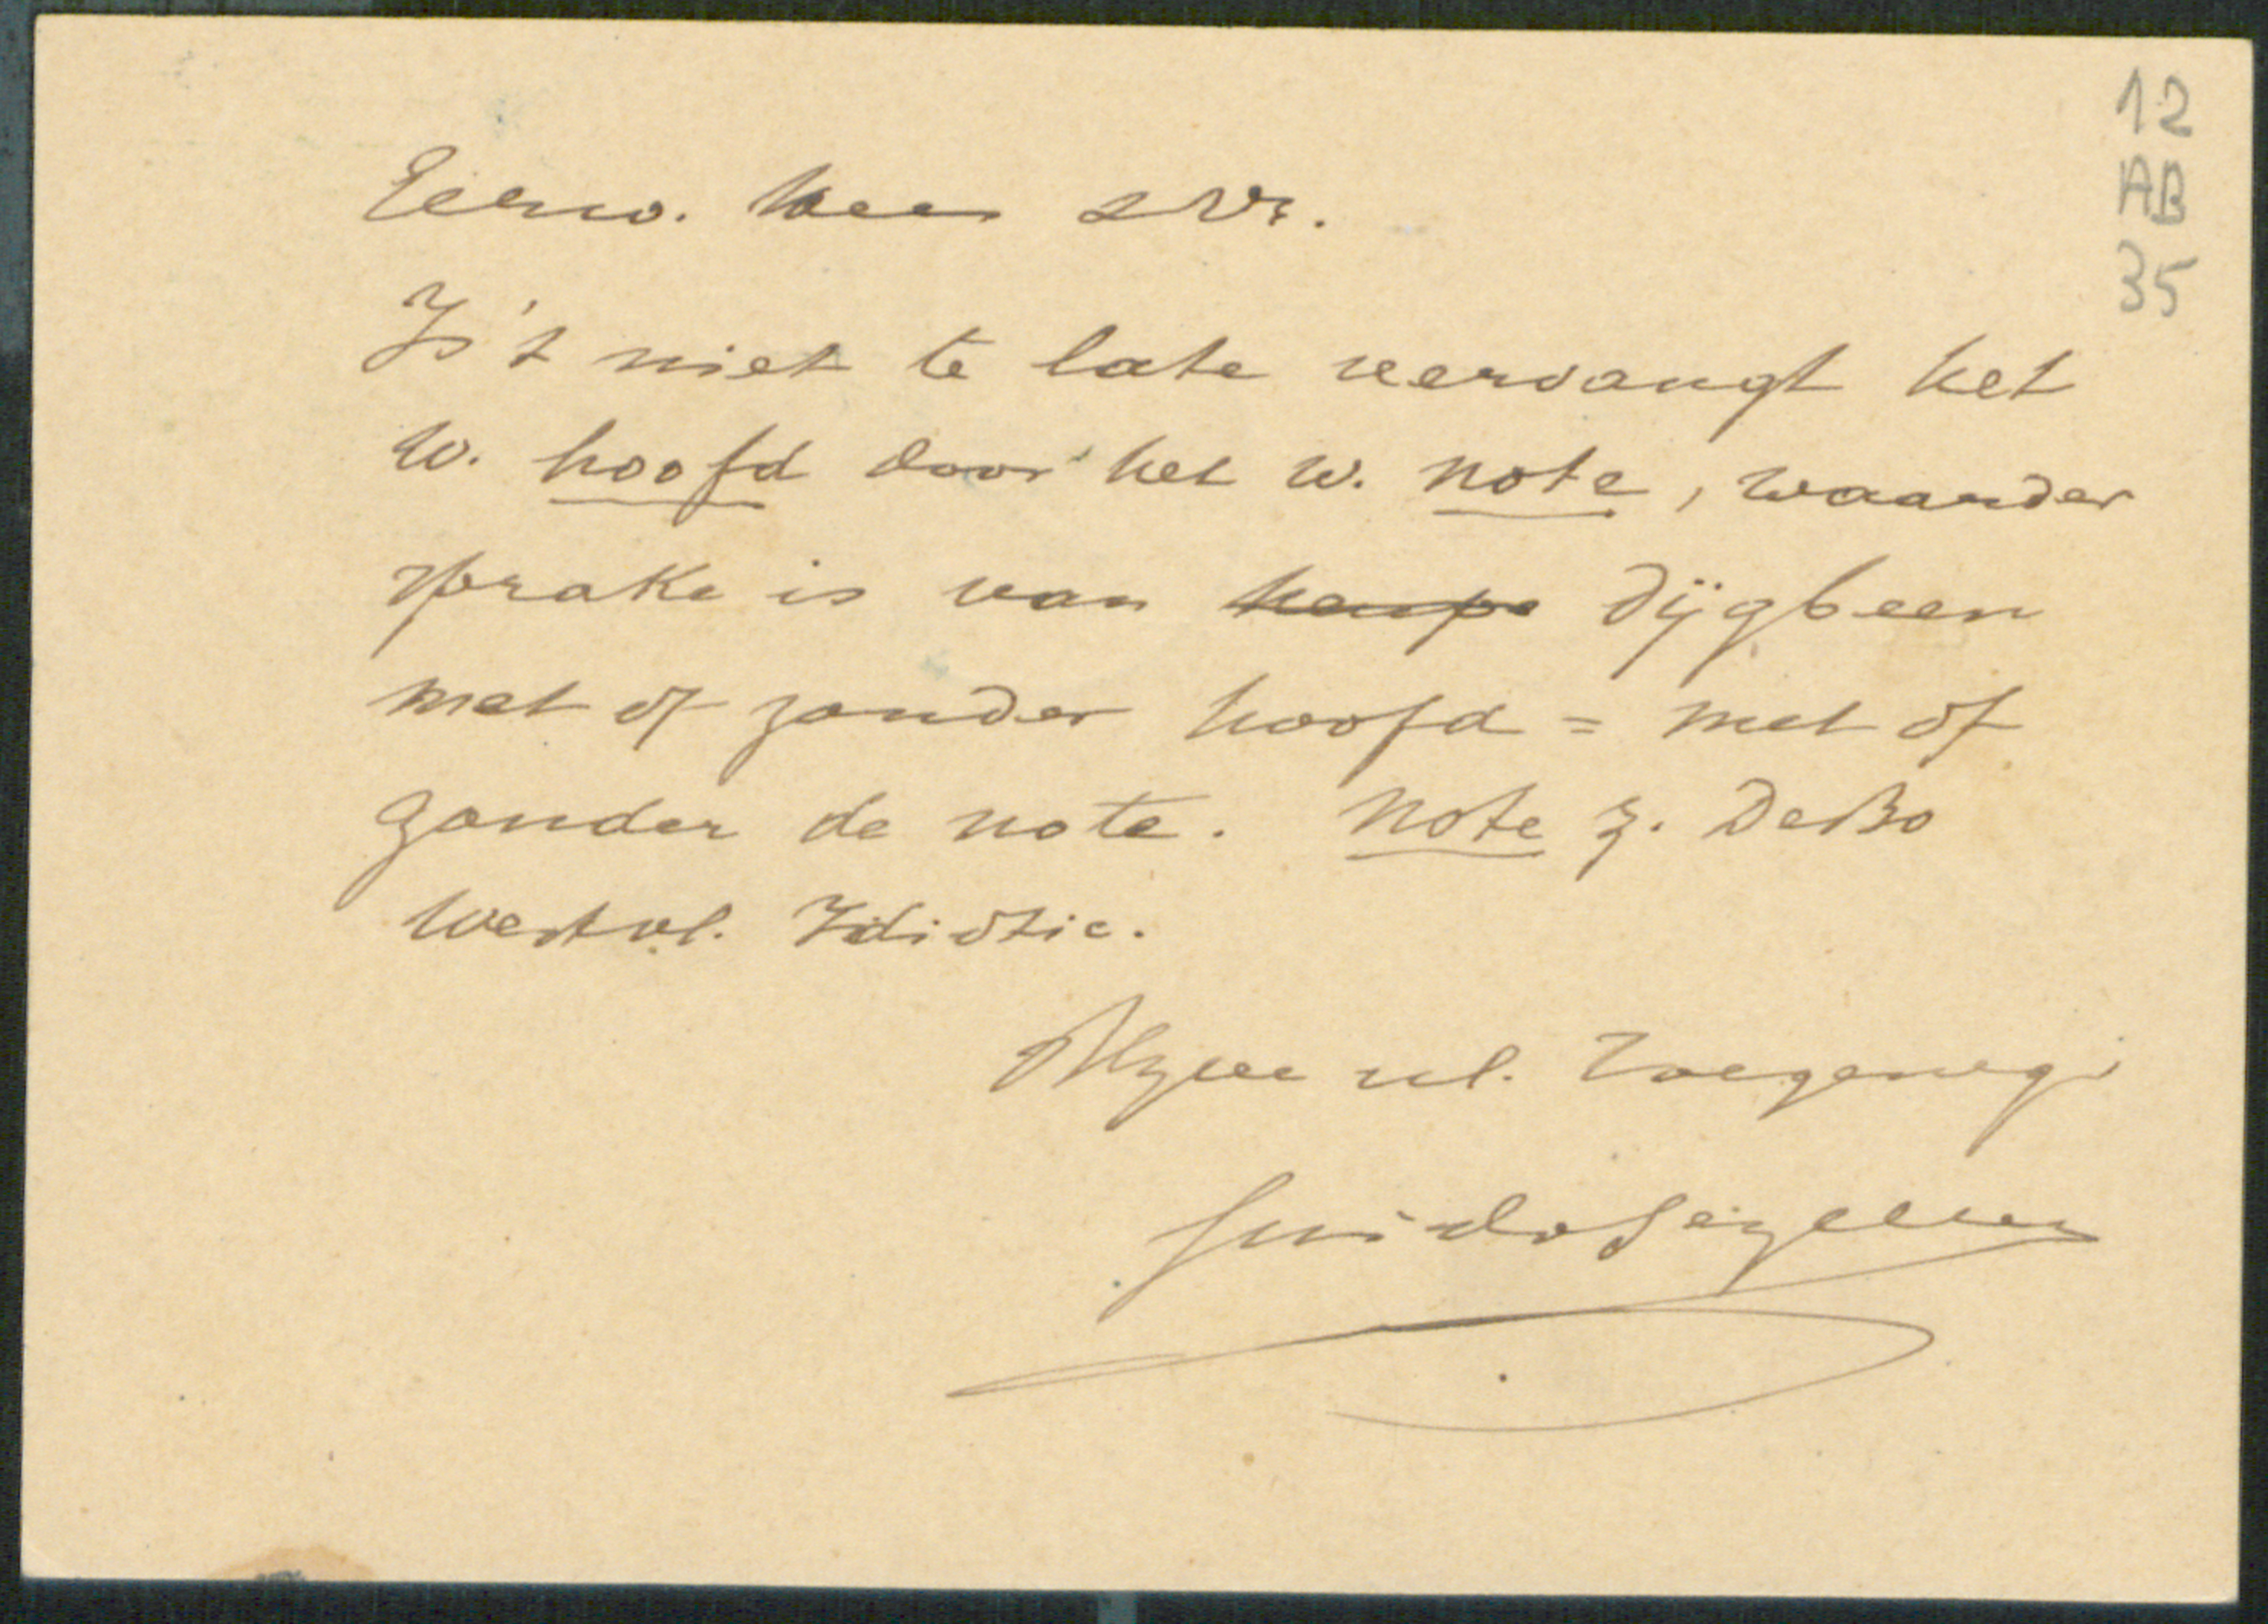 12
AB
35
Eerw. heer & Vr.
Is 't niet te late vervangt het
w. hoofd door het w. note, waarder
sprake is van heupe dijgbeen
met of zonder hoofd = met of
zonder de note. Note z. DeBo
Westvl. Idiotic.
Algeheel. toegeneg.
Guido Gezelle